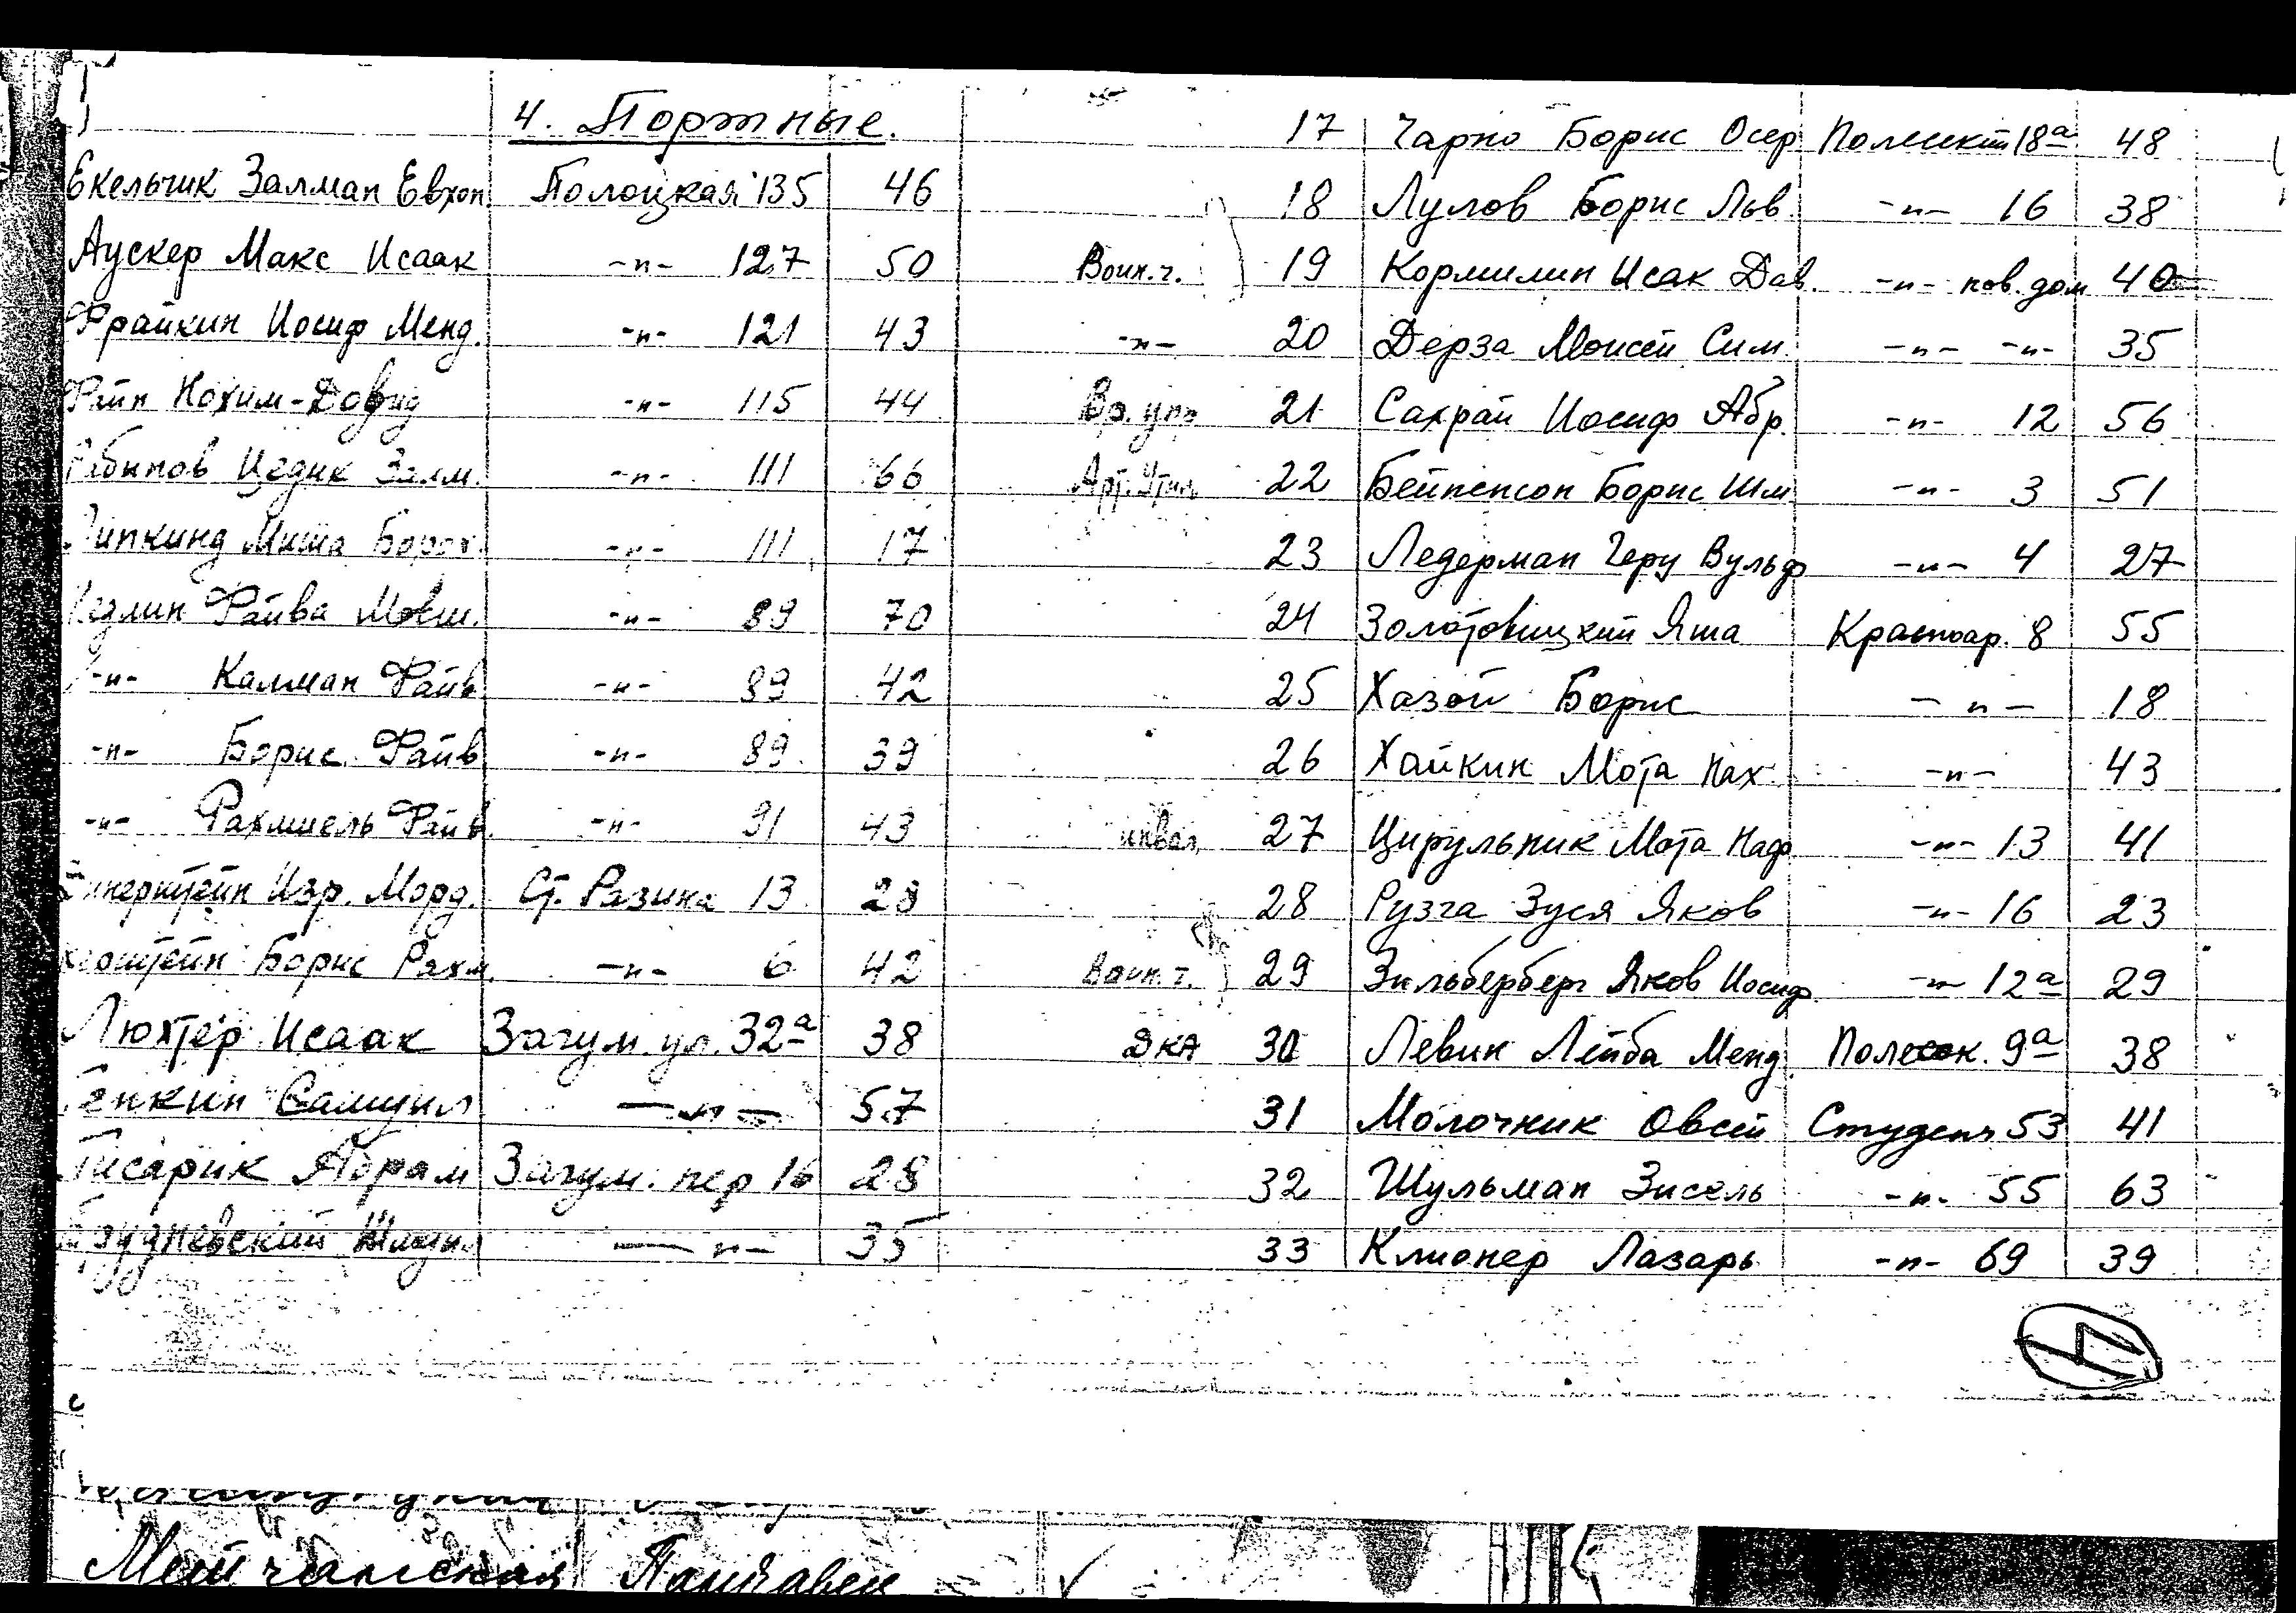 4. Портные.
Екельчик Залман Евхон Полоцкая 135 46
Аускер Макс Исаак -"- 127 50
Фрайкин Иосиф Менд. -"- 121 43
Файн Нохим-Довид -"- 115 44
Рабинов Цедик Залм. -"- 111 66
Липкинд Миша Борох. -"- 111 17
Файва Мовш. -"- 89 70
-"- Калман Файв -"- 89 42
-"- Борис Файв -"- 89 39
-"- Рахмиель Файв. -"- 91 43
Изр. Морд. Ст. Разина 13 28
Борис Рахм. -"- 6 42
Люхтер Исаак Загум. ул. 32а 38
Генкин Самуил -"- 57
Писарик Абрам Загум. пер 16 28
-"- 35
17 Чарно Борис Осер 18а 48
18 Лулов Борис Льв. -"- 16 38
Воин.ч. 19 Кормилин Исак Дав. -"- нов. дом 40
-"- 20 Дерза Моисей Сим. -"- -"- 35
Вр. упр 21 Сахрай Иосиф Абр. -"- 12 56
Арт. Утиль 22 Бейненсон Борис Шм -"- 3 51
23 Ледерман Геру Вульф -"- 4 27
24 Золотовицкий Яша Красноар. 8 55
25 Хазой Борис -"- 18
26 Хайкин Мота Нах. -"- 43
инвал. 27 Цирульник Мота Наф -"- 13 41
28 Рузга Зуся Яков -"- 16 23
Воин.ч. 29 Зильберберг Яков Иосиф -"- 12а 29
ДКА 30 Левин Лейба Менд. Полеск. 9а 38
31 Молочник Овсей Студенч 53 41
32 Шульман Зисель -"- 55 63
33 Клионер Лазарь -"- 69 39